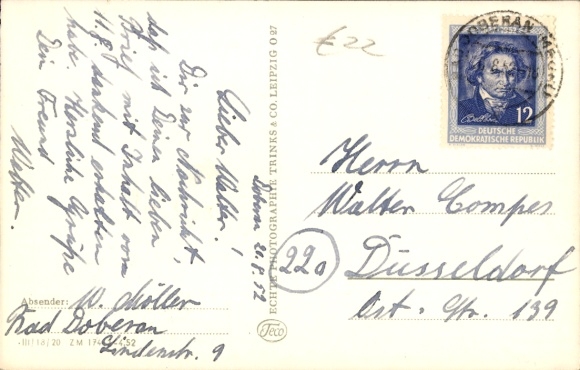 Doberan 20.8.52
Lieber Walter!
Dir zur Nachricht,
daß ich Deinen lieben
Brief mit Inhalt vom
11.8. dankend erhalten
habe. Herzliche Grüße
Dein Freund
Walter.
Absender: W. Möller
Bad Doberan
Lindenstr. 9
III/18/20 Z M 174 4.52
ECHTE PHOTOGRAPHIE TRINKS & CO. LEIPZIG O 27
Teco
22
DOBERAN
12
Beethoven
DEUTSCHE
DEMOKRATISCHE REPUBLIK
Herrn
Walter Compes
22a Düsseldorf
Ost-Str. 139